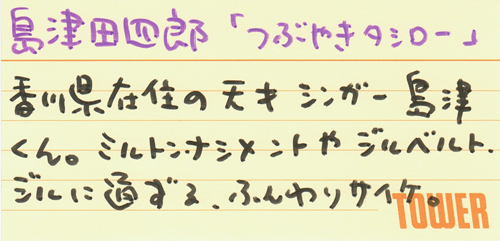 島津田四郎「つぶやきタシロー」
香川県在住の天才シンガー島津
くん。ミルトン・ナシメントやジルベルト・
ジルに通ずる、ふんわりサイケ。
TOWER